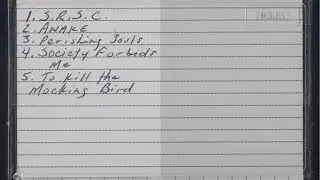 1. S.R.S.C.
2. AWAKE
3. Perishing Souls
4. Society Forbids
Me
5. To Kill the
Mocking Bird